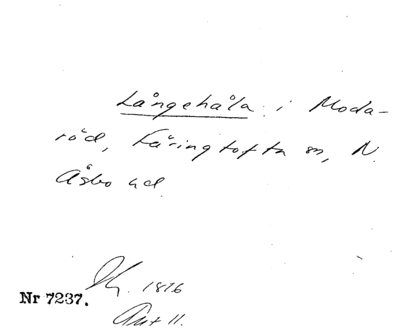 Långehåla i Moda-
röd, Färingtofta sn, N.
Åsbo hd
1876
Nr 7237.
11.